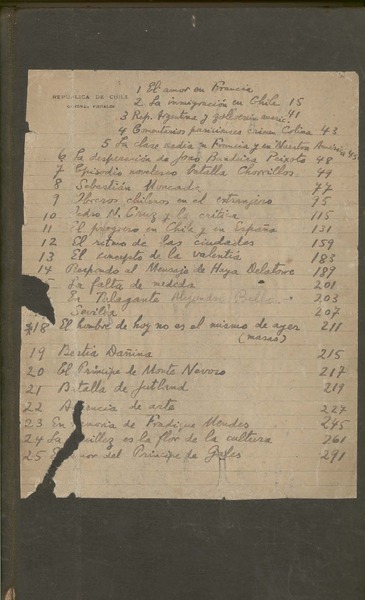 REPÚBLICA DE CHILE
1 El amor en Francia
2 La inmigración en Chile 15
3 Rep. Argentina y 41
4 Comentarios parisienses Colina 43
5 La clase media en Francia y en Nuestra América 45
6 La desperación de Joao Bandeira Peixoto 48
7 Episodio novelesco batalla Chorrillos 49
8 Sebastián Moncada 77
9 Obreros chilenos en el extranjero 95
10 Pedro N. Cruz y la crítica 115
11 El progreso en Chile y en España 131
12 El ritmo de las ciudades 159
13 El concepto de la valentía 183
14 Respondo al Mensaje de Haya Delatorre 189
La falta de medida 201
En Talagante Alejandro Bello 203
Sevilla 207
18 El hombre de hoy no es el mismo de ayer 211
(masas)
19 Bestia Dañina 215
20 El Príncipe de Monte Nevoso 217
21 Batalla de Jutland 219
22 de arte 227
23 En memoria de Fradique Mendes 245
24 La es la flor de la cultura 261
25 del Príncipe de Gales 291